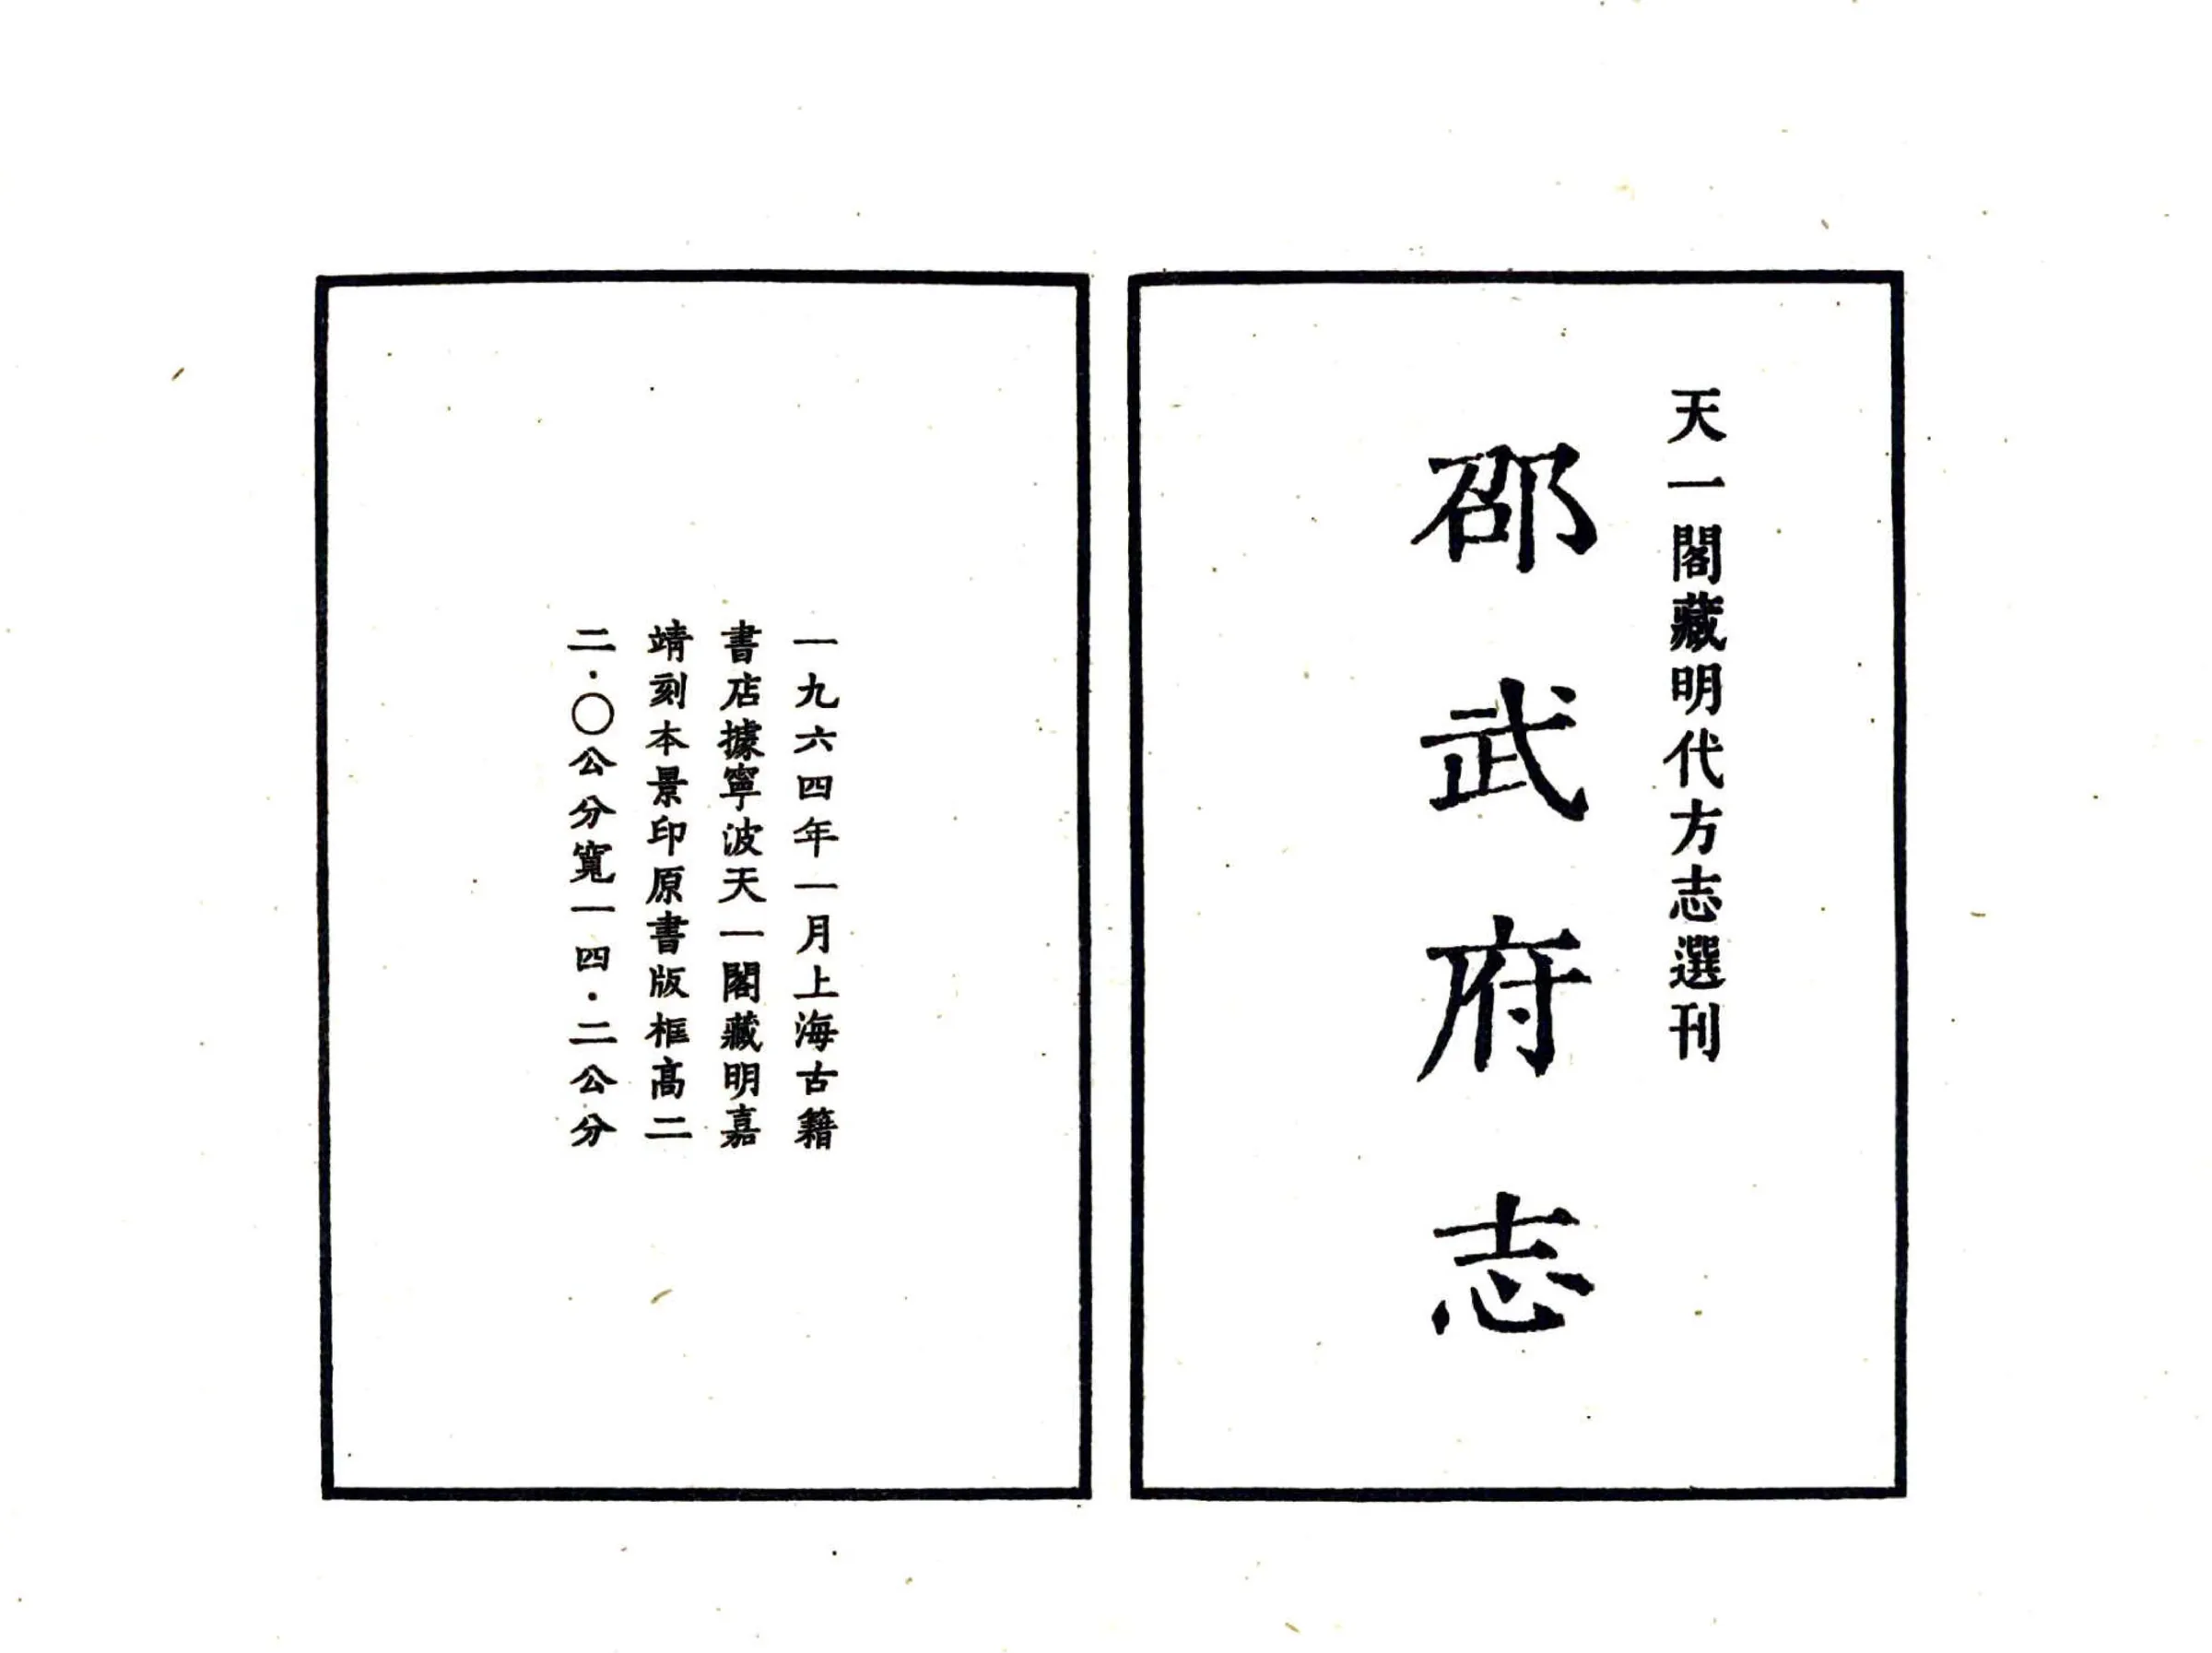 天一閣藏明代方志選刊
邵武府志
一九六四年一月上海古籍
書店據寧波天一閣藏明嘉
靖刻本景印原書版框高二
二·〇公分寬一四·二公分